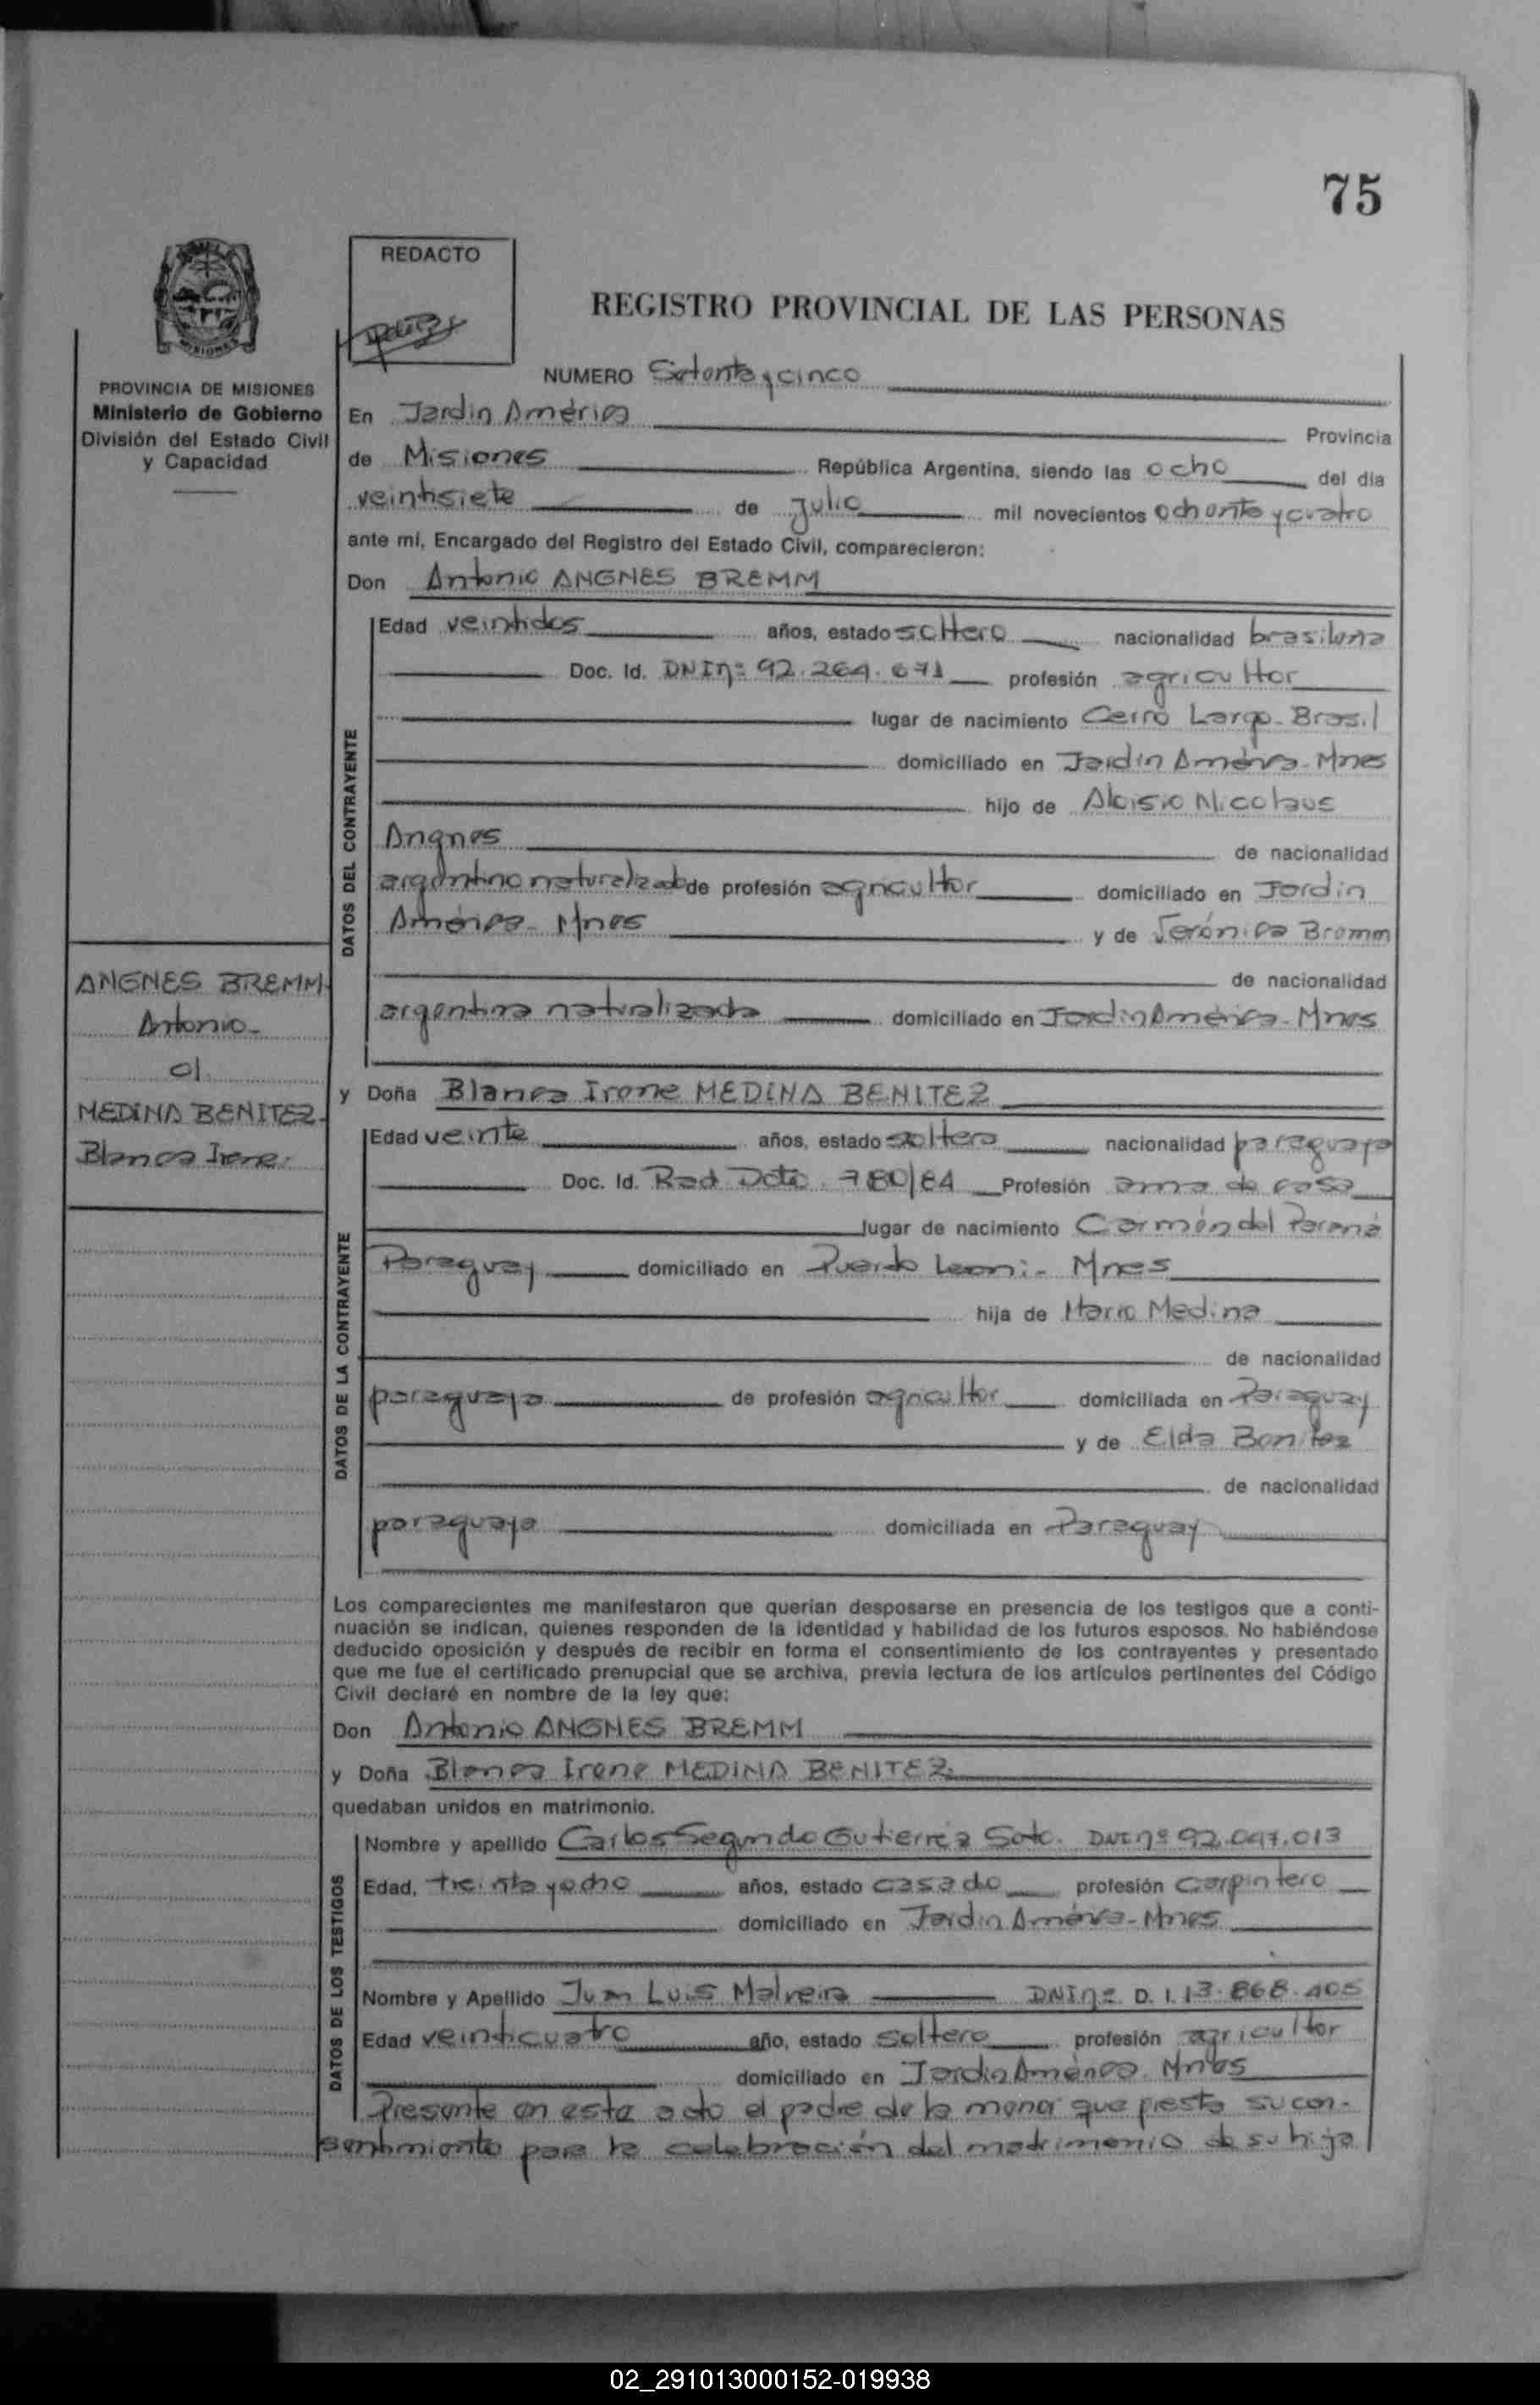 75
REDACTO
REGISTRO PROVINCIAL DE LAS PERSONAS
MISIONES
PROVINCIA DE MISIONES
Ministerio de Gobierno
División del Estado Civil
y Capacidad
NUMERO Setenta y cinco
En Jardin América Provincia
de Misiones República Argentina, siendo las ocho del dia
veintisiete de julio mil novecientos ochenta y cuatro
ante mi, Encargado del Registro del Estado Civil, comparecieron:
Don Antonio ANGNES BREMM
DATOS DEL CONTRAYENTE
Edad veintidos años, estado soltero nacionalidad brasileña
Doc. Id. DNInº 92.264.671 profesión agricultor
lugar de nacimiento Cerro Largo-Brasil
domiciliado en Jardin América-Mnes
hijo de Aloisio Nicolaus
Angnes de nacionalidad
argentino naturalizado de profesión agricultor domiciliado en Jardin
América-Mnes y de Verónica Bremm
de nacionalidad
argentina naturalizada domiciliado en Jardin América-Mnes
ANGNES BREMM
Antonio-
c/.
MEDINA BENITEZ-
Blanca Irene-
y Doña Blanca Irene MEDINA BENITEZ
DATOS DE LA CONTRAYENTE
Edad veinte años, estado soltera nacionalidad paraguaya
Doc. Id. Rad Dcto 780/84 Profesión ama de casa
lugar de nacimiento Carmen del Paraná
Paraguay domiciliado en Puerto Leoni- Mnes
hija de Mario Medina
de nacionalidad
paraguaya de profesión agricultor domiciliada en Paraguay
y de Elda Benitez
de nacionalidad
paraguaya domiciliada en Paraguay
Los comparecientes me manifestaron que querian desposarse en presencia de los testigos que a conti-
nuación se indican, quienes responden de la identidad y habilidad de los futuros esposos. No habiéndose
deducido oposición y después de recibir en forma el consentimiento de los contrayentes y presentado
que me fue el certificado prenupcial que se archiva, previa lectura de los artículos pertinentes del Código
Civil declaré en nombre de la ley que:
Don Antonio ANGNES BREMM
y Doña Blanca Irene MEDINA BENITEZ
quedaban unidos en matrimonio.
DATOS DE LOS TESTIGOS
Nombre y apellido Carlos Segundo Gutierrez Soto. DNInº 92.047.013
Edad, treinta y ocho años, estado casado profesión carpintero
domiciliado en Jardin América-Mnes
Nombre y Apellido Juan Luis Malveira DNInº D.I.13.868.405
Edad veinticuatro año, estado soltero profesión agricultor
domiciliado en Jardin América. Mnes
Presente en este acto el padre de la menor que presta su con-
sentimiento para la celebración del matrimonio de su hija
02_291013000152-019938